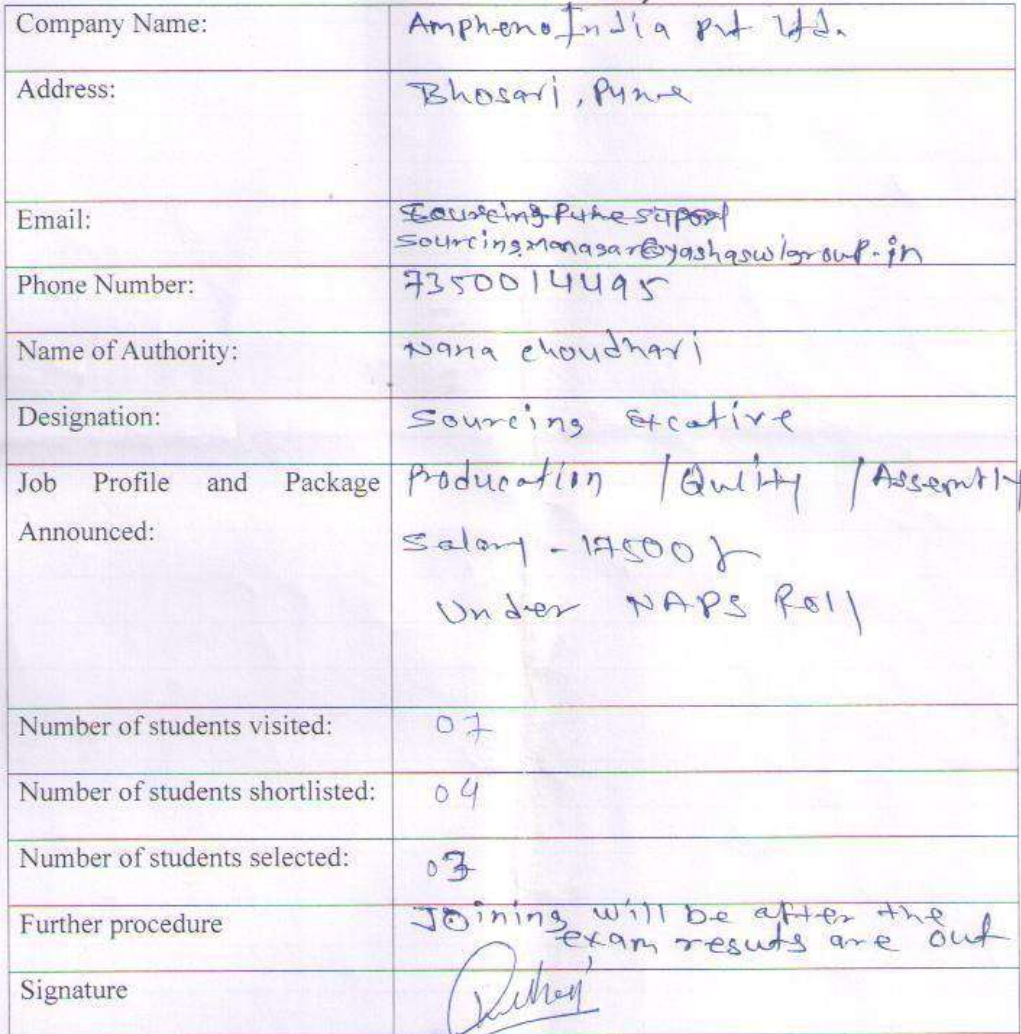 Company Name: Ampheno India Pvt Ltd.
Address: Bhosari, Pune
Email:
sourcingmanagar@yashaswigroup.in
Phone Number: 7350014495
Name of Authority: Nana choudhari
Designation: Sourcing Excative
Job Profile and Package Producation / Qulity / Assembly
Announced: Salary - 17500
Under NAPS Roll
Number of students visited: 07
Number of students shortlisted: 04
Number of students selected: 03
Further procedure Joining will be after the
exam resuts are out
Signature